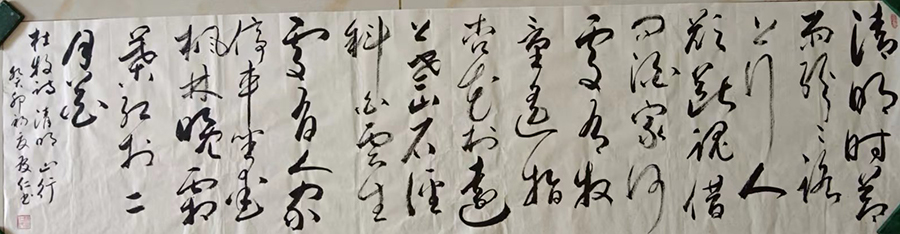 清明时节
雨纷々路
上行人
欲断魂借
问酒家何
处有牧
童遥指
杏花村远
上寒山石径
斜白云生
处有人家
停车坐爱
枫林晚霜
叶红于二
月花
杜牧诗 清明 山行
癸卯初夏 仁书